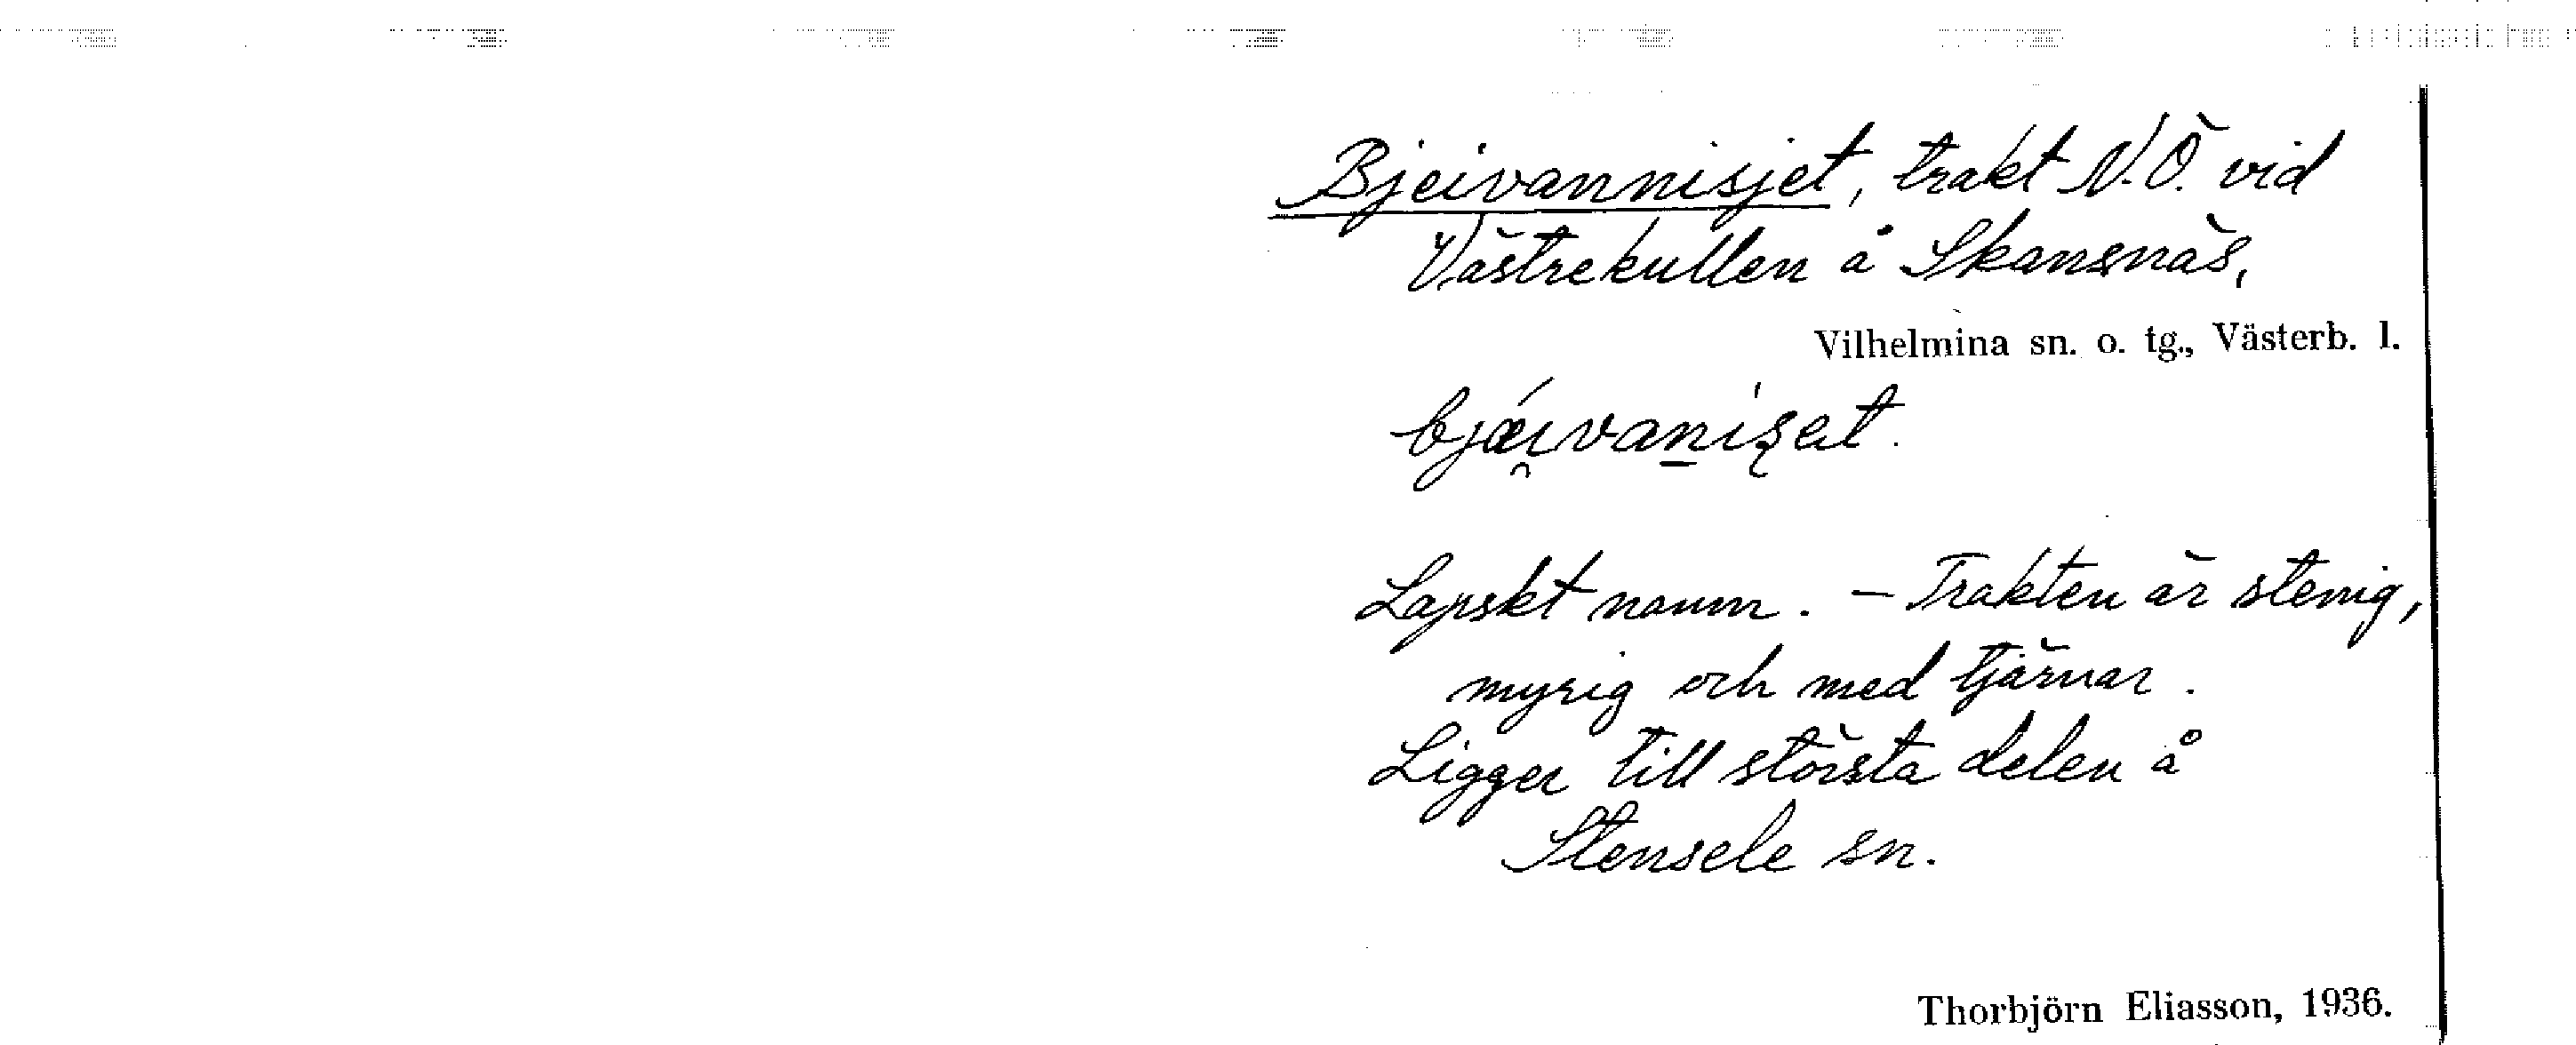 Bjeivannisjet, trakt N.Ö. vid
Västrekullen å Skansnäs,
Vilhelmina sn. o. tg., Västerb. l.
bjǽi̯vaṉiʂet.
Lapskt namn. – Trakten är stenig,
myrig och med tjärnar.
Ligger till största delen å
Stensele sn.
Thorbjörn Eliasson, 1936.